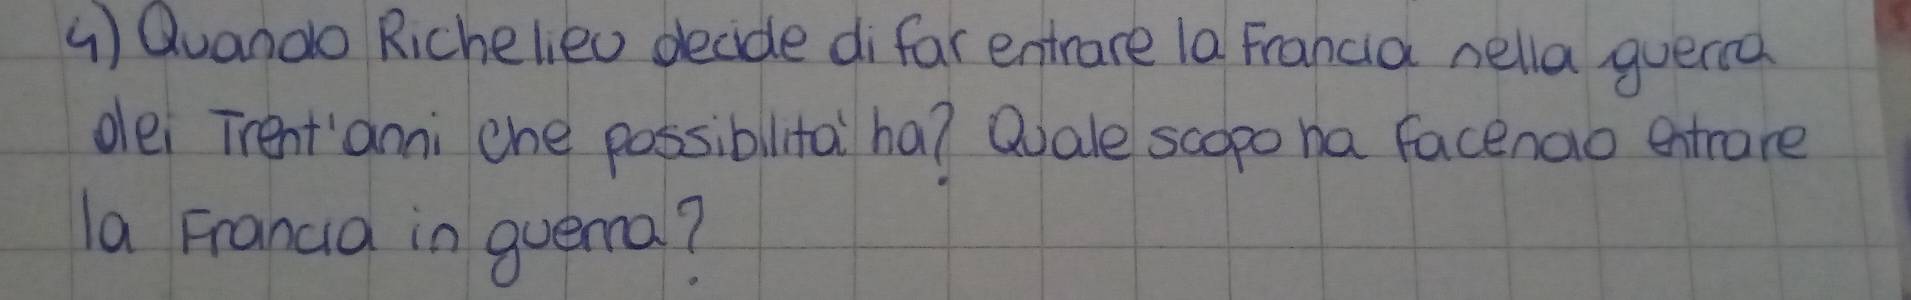 4) Quando Richelieu decide di far entrare la Francia nella guerra
dei Trent'anni che possibilità ha? Quale scopo ha facendo entrare
la Francia in guerra?